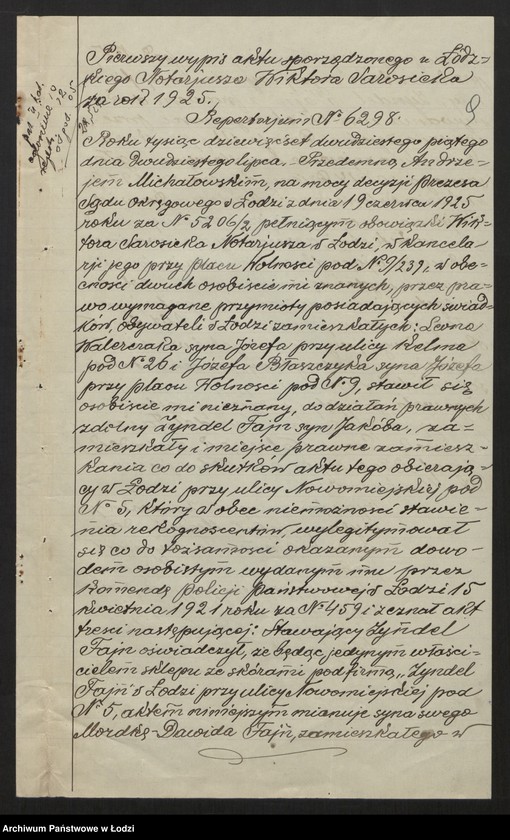 Pierwszy wypis aktu sporządzonego u Łódz-
kiego Notarjusza Wiktora Sarosieka
za rok 1925.
Repertorjum № 6298.
9
Roku tysiąc dziewięćset dwudziestego piątego
dnia dwudziestego lipca. Przedemną, Andrze-
jem Michałowskim, na mocy decyzji Prezesa
Sądu Okręgowego w Łodzi z dnia 19 czerwca 1925
roku za № 5206/2 pełniącym obowiązki Wik-
tora Sarosieka Notarjusza w Łodzi, w kancela-
rji jego przy placu Wolności pod № 9/239, w obe-
cności dwuch osobiście mi znanych, przez pra-
wo wymagane przymioty posiadających świad-
ków, obywateli w Łodzi zamieszkałych: Leona
Walerciaka syna Józefa przy ulicy Kelma
pod № 26 i Józefa Błaszczyka syna Józefa
przy placu Wolności pod № 9, stawił się
osobiście mi nieznany, do działań prawnych
zdolny Zyndel Fajn syn Jakóba, za-
mieszkały i miejsce prawne zamiesz-
kania co do skutków aktu tego obierają-
cy w Łodzi przy ulicy Nowomiejskiej pod
№ 5, który wobec niemożności stawie-
nia rekognoscentów, wylegitymował
się co do tożsamości okazanym dowo-
dem osobistym wydanym mu przez
Komendę Policji Państwowej w Łodzi 15
kwietnia 1921 roku za № 459 i zeznał akt
treści następującej: Stawający Zyndel
Fajn oświadczył, że będąc jedynym właści-
cielem sklepu ze skórami pod firmą "Zyndel
Fajn" w Łodzi przy ulicy Nowomiejskiej pod
№ 5, aktem niniejszym mianuje syna swego
Mordkę-Dawida Fajn, zamieszkałego w
Archiwum Państwowe w Łodzi